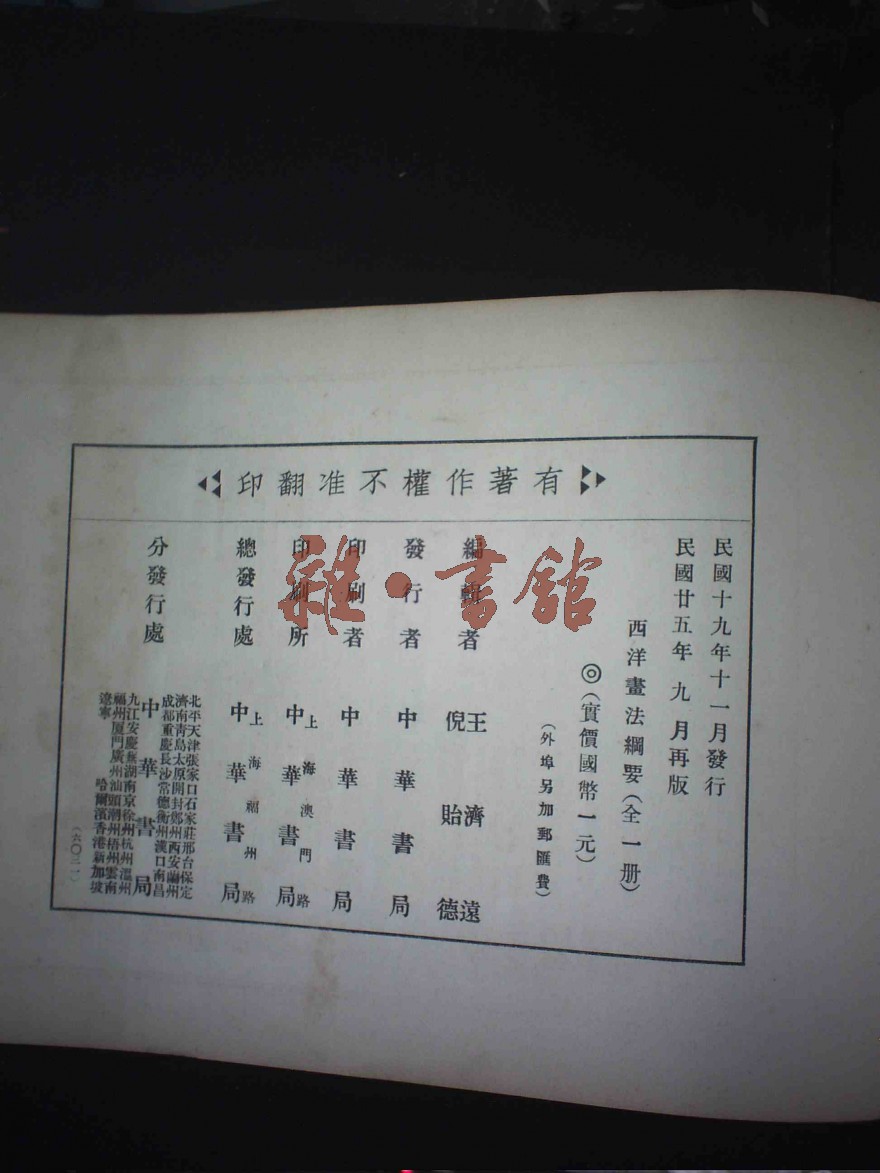 有著作權不准翻印
民國十九年十一月發行
民國廿五年九月再版
西洋畫法綱要(全一册)
◎(實價國幣一元)
(外埠另加郵匯費)
編輯者 王濟遠
倪貽德
發行者 中華書局
印刷者 中華書局
印刷所 上海澳門路
中華書局
總發行處 上海福州路
中華書局
分發行處
北平天津張家口石家莊邢台保定
濟南青島太原開封鄭州西安蘭州
成都重慶長沙常德衡州漢口南昌
中華書局
九江安慶蕪湖南京徐州杭州溫州
福州厦門廣州汕頭潮州梧州雲南
遼寧 哈爾濱香港新加坡
(六〇三一)
雜·書館